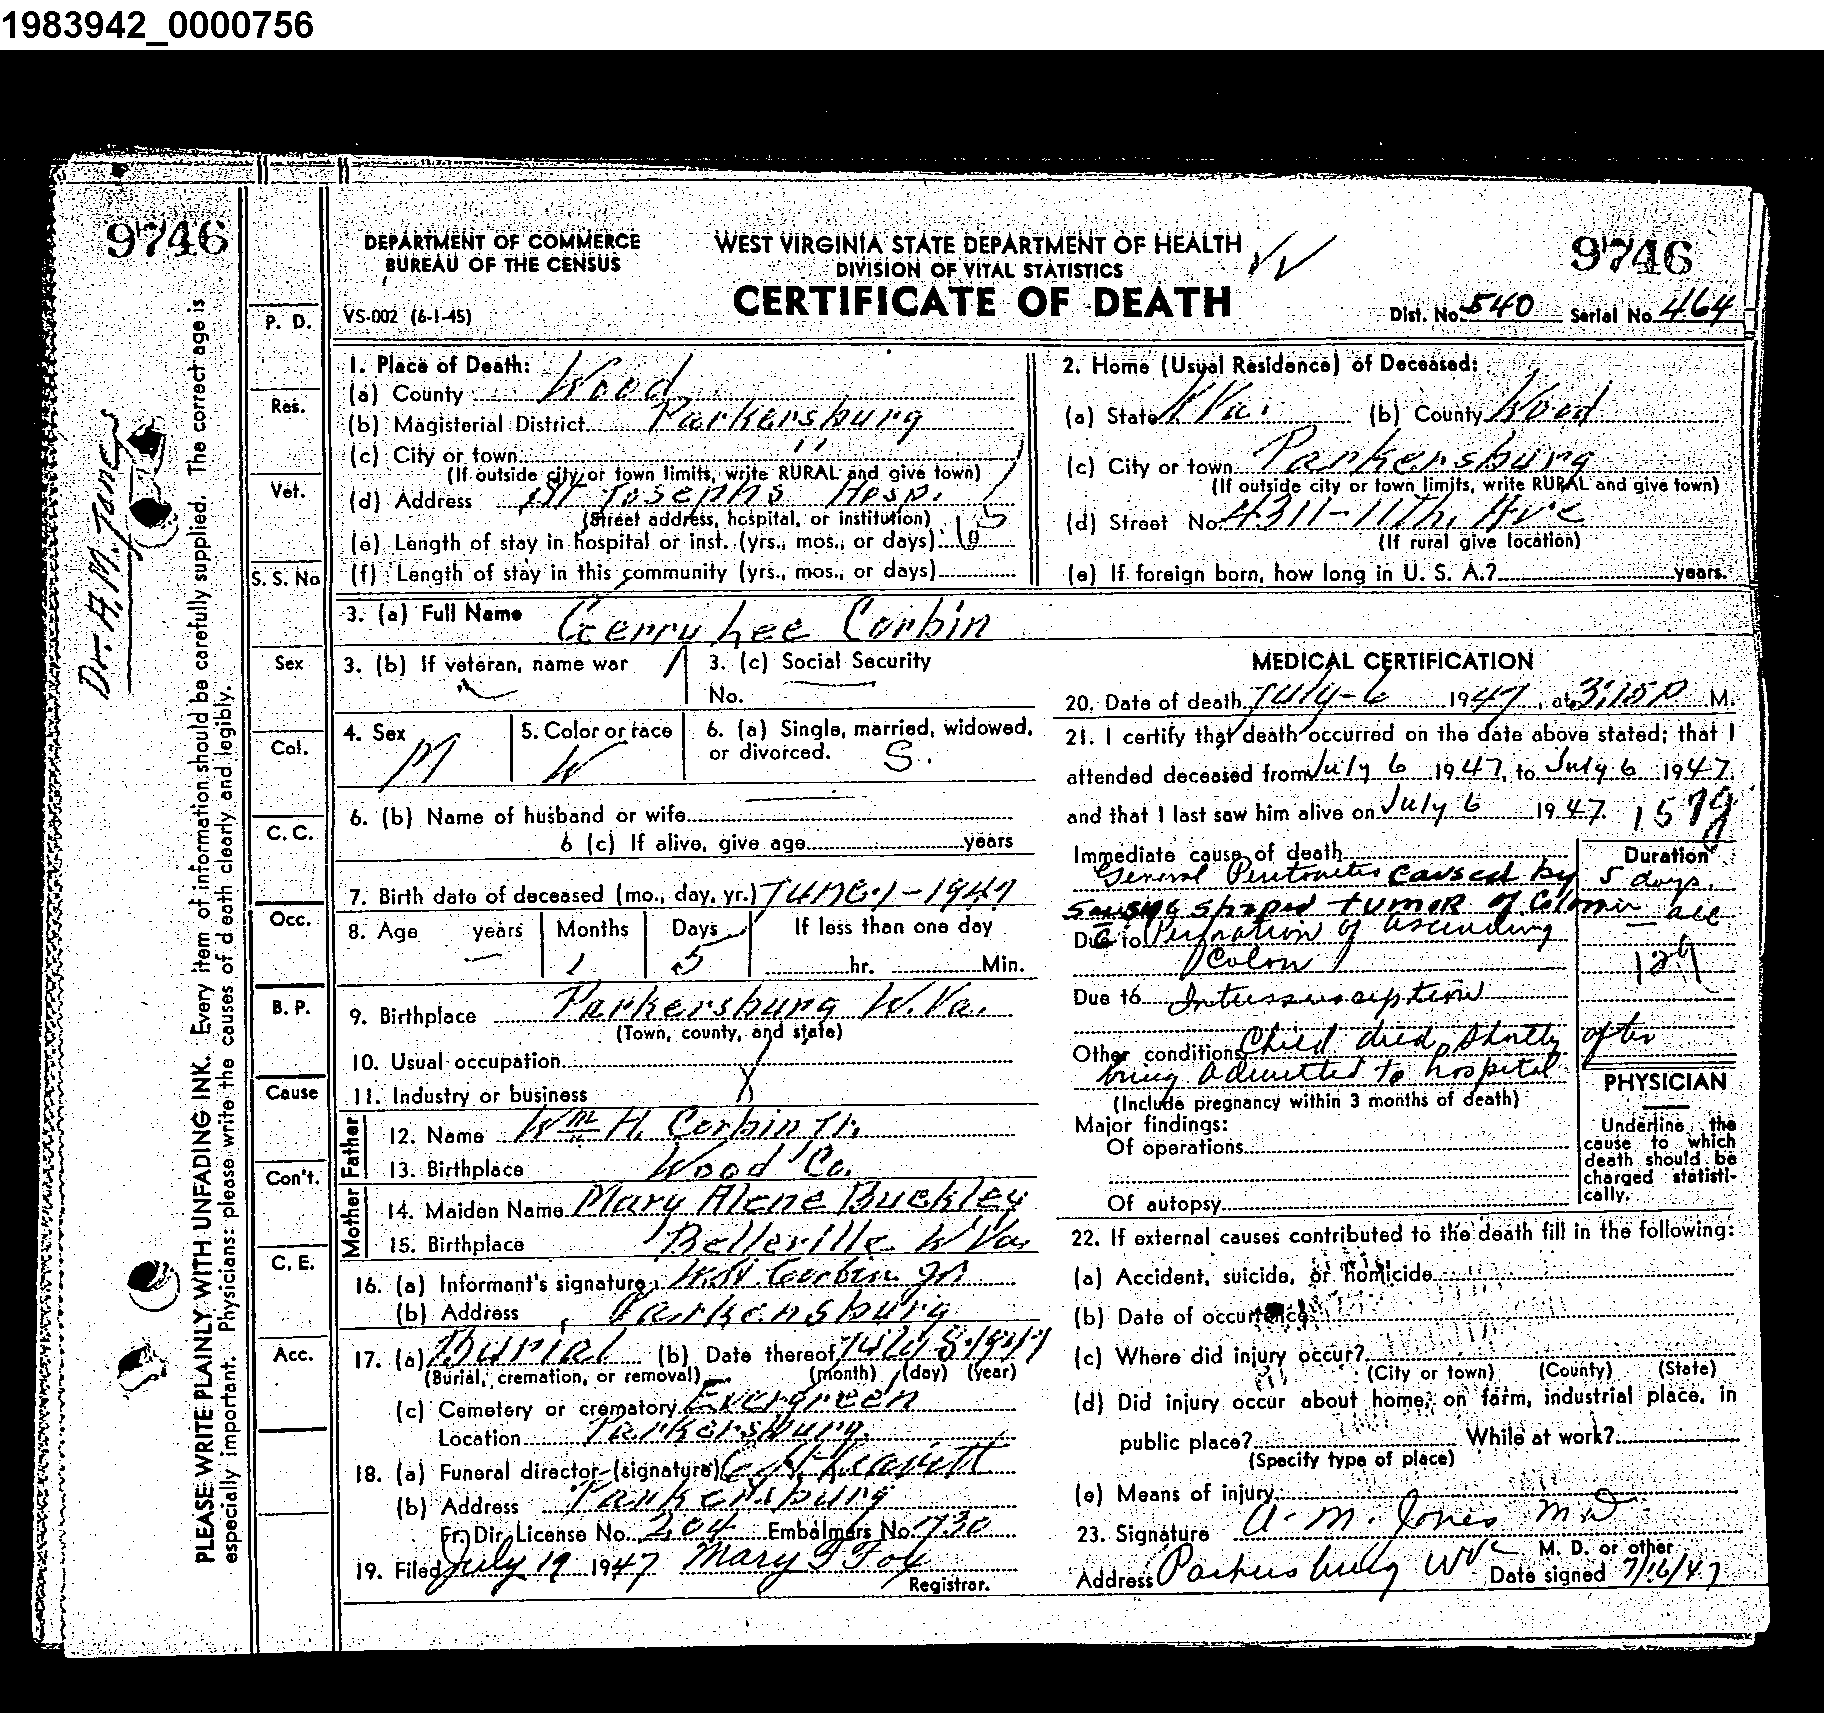 1983942_0000756
9746
DEPARTMENT OF COMMERCE
BUREAU OF THE CENSUS
WEST VIRGINIA STATE DEPARTMENT OF HEALTH
DIVISION OF VITAL STATISTICS
CERTIFICATE OF DEATH
9746
VS-002 (6-1-45)
Dist. No. 540 Serial No. 464
Dr. A.M. Jones
PLEASE WRITE PLAINLY WITH UNFADING INK. Every item of information should be carefully supplied. The correct age is
especially important. Physicians: please write the causes of death clearly and legibly.
P. D.
Res.
Vet.
S. S. No
Sex
Col.
C. C.
Occ.
B. P.
Cause
Con't.
C. E.
Acc.
1. Place of Death:
(a) County Wood
(b) Magisterial District Parkersburg
(c) City or town "
(If outside city or town limits, write RURAL and give town)
(d) Address St Josephs Hosp.
(Street address, hospital, or institution)
(e) Length of stay in hospital or inst. (yrs., mos., or days)
(f) Length of stay in this community (yrs., mos., or days)
2. Home (Usual Residence) of Deceased:
(a) State W Va. (b) County Wood
(c) City or town Parkersburg
(If outside city or town limits, write RURAL and give town)
(d) Street No. 4311-11th, Ave
(If rural give location)
(e) If foreign born, how long in U. S. A.? years.
3. (a) Full Name Gerry Lee Corbin
3. (b) If veteran, name war
3. (c) Social Security
No.
4. Sex M
5. Color or race W
6. (a) Single, married, widowed,
or divorced. S.
6. (b) Name of husband or wife
6 (c) If alive, give age years
7. Birth date of deceased (mo., day, yr.) June 1-1947
8. Age years Months Days If less than one day
— 1 5 hr. Min.
9. Birthplace Parkersburg W. Va.
(Town, county, and state)
10. Usual occupation
11. Industry or business
Father
12. Name Wm H. Corbin Jr.
13. Birthplace Wood Co.
Mother
14. Maiden Name Mary Alene Buckley
15. Birthplace Belleville W Va.
16. (a) Informant's signature W. H. Corbin Jr
(b) Address Parkersburg
17. (a) Burial (b) Date thereof July 8 1947
(Burial, cremation, or removal) (month) (day) (year)
(c) Cemetery or crematory Evergreen
Location Parkersburg.
18. (a) Funeral director (signature) Leavitt
(b) Address Parkersburg
Fr. Dir. License No. 204 Embalmers No. 1730
19. Filed July 19 1947 Mary F Fox
Registrar.
MEDICAL CERTIFICATION
20. Date of death July-6 1947, at 3:15 P M.
21. I certify that death occurred on the date above stated; that I
attended deceased from July 6 1947, to July 6 1947.
and that I last saw him alive on July 6 1947.
Immediate cause of death
Duration
General Peritonitis caused by 5 days.
sausage shaped tumor of Colon
Due to Perforation of ascending
Colon
Due to Intussusception
Other conditions Child died shortly after
being admitted to hospital
(Include pregnancy within 3 months of death)
Major findings:
Of operations
Of autopsy
PHYSICIAN
Underline the
cause to which
death should be
charged statisti-
cally.
22. If external causes contributed to the death fill in the following:
(a) Accident, suicide, or homicide
(b) Date of occurrence
(c) Where did injury occur?
(City or town) (County) (State)
(d) Did injury occur about home, on farm, industrial place, in
public place? While at work?
(Specify type of place)
(e) Means of injury
23. Signature A. M. Jones M D
M. D. or other
Address Parkersburg W Va Date signed 7/16/47